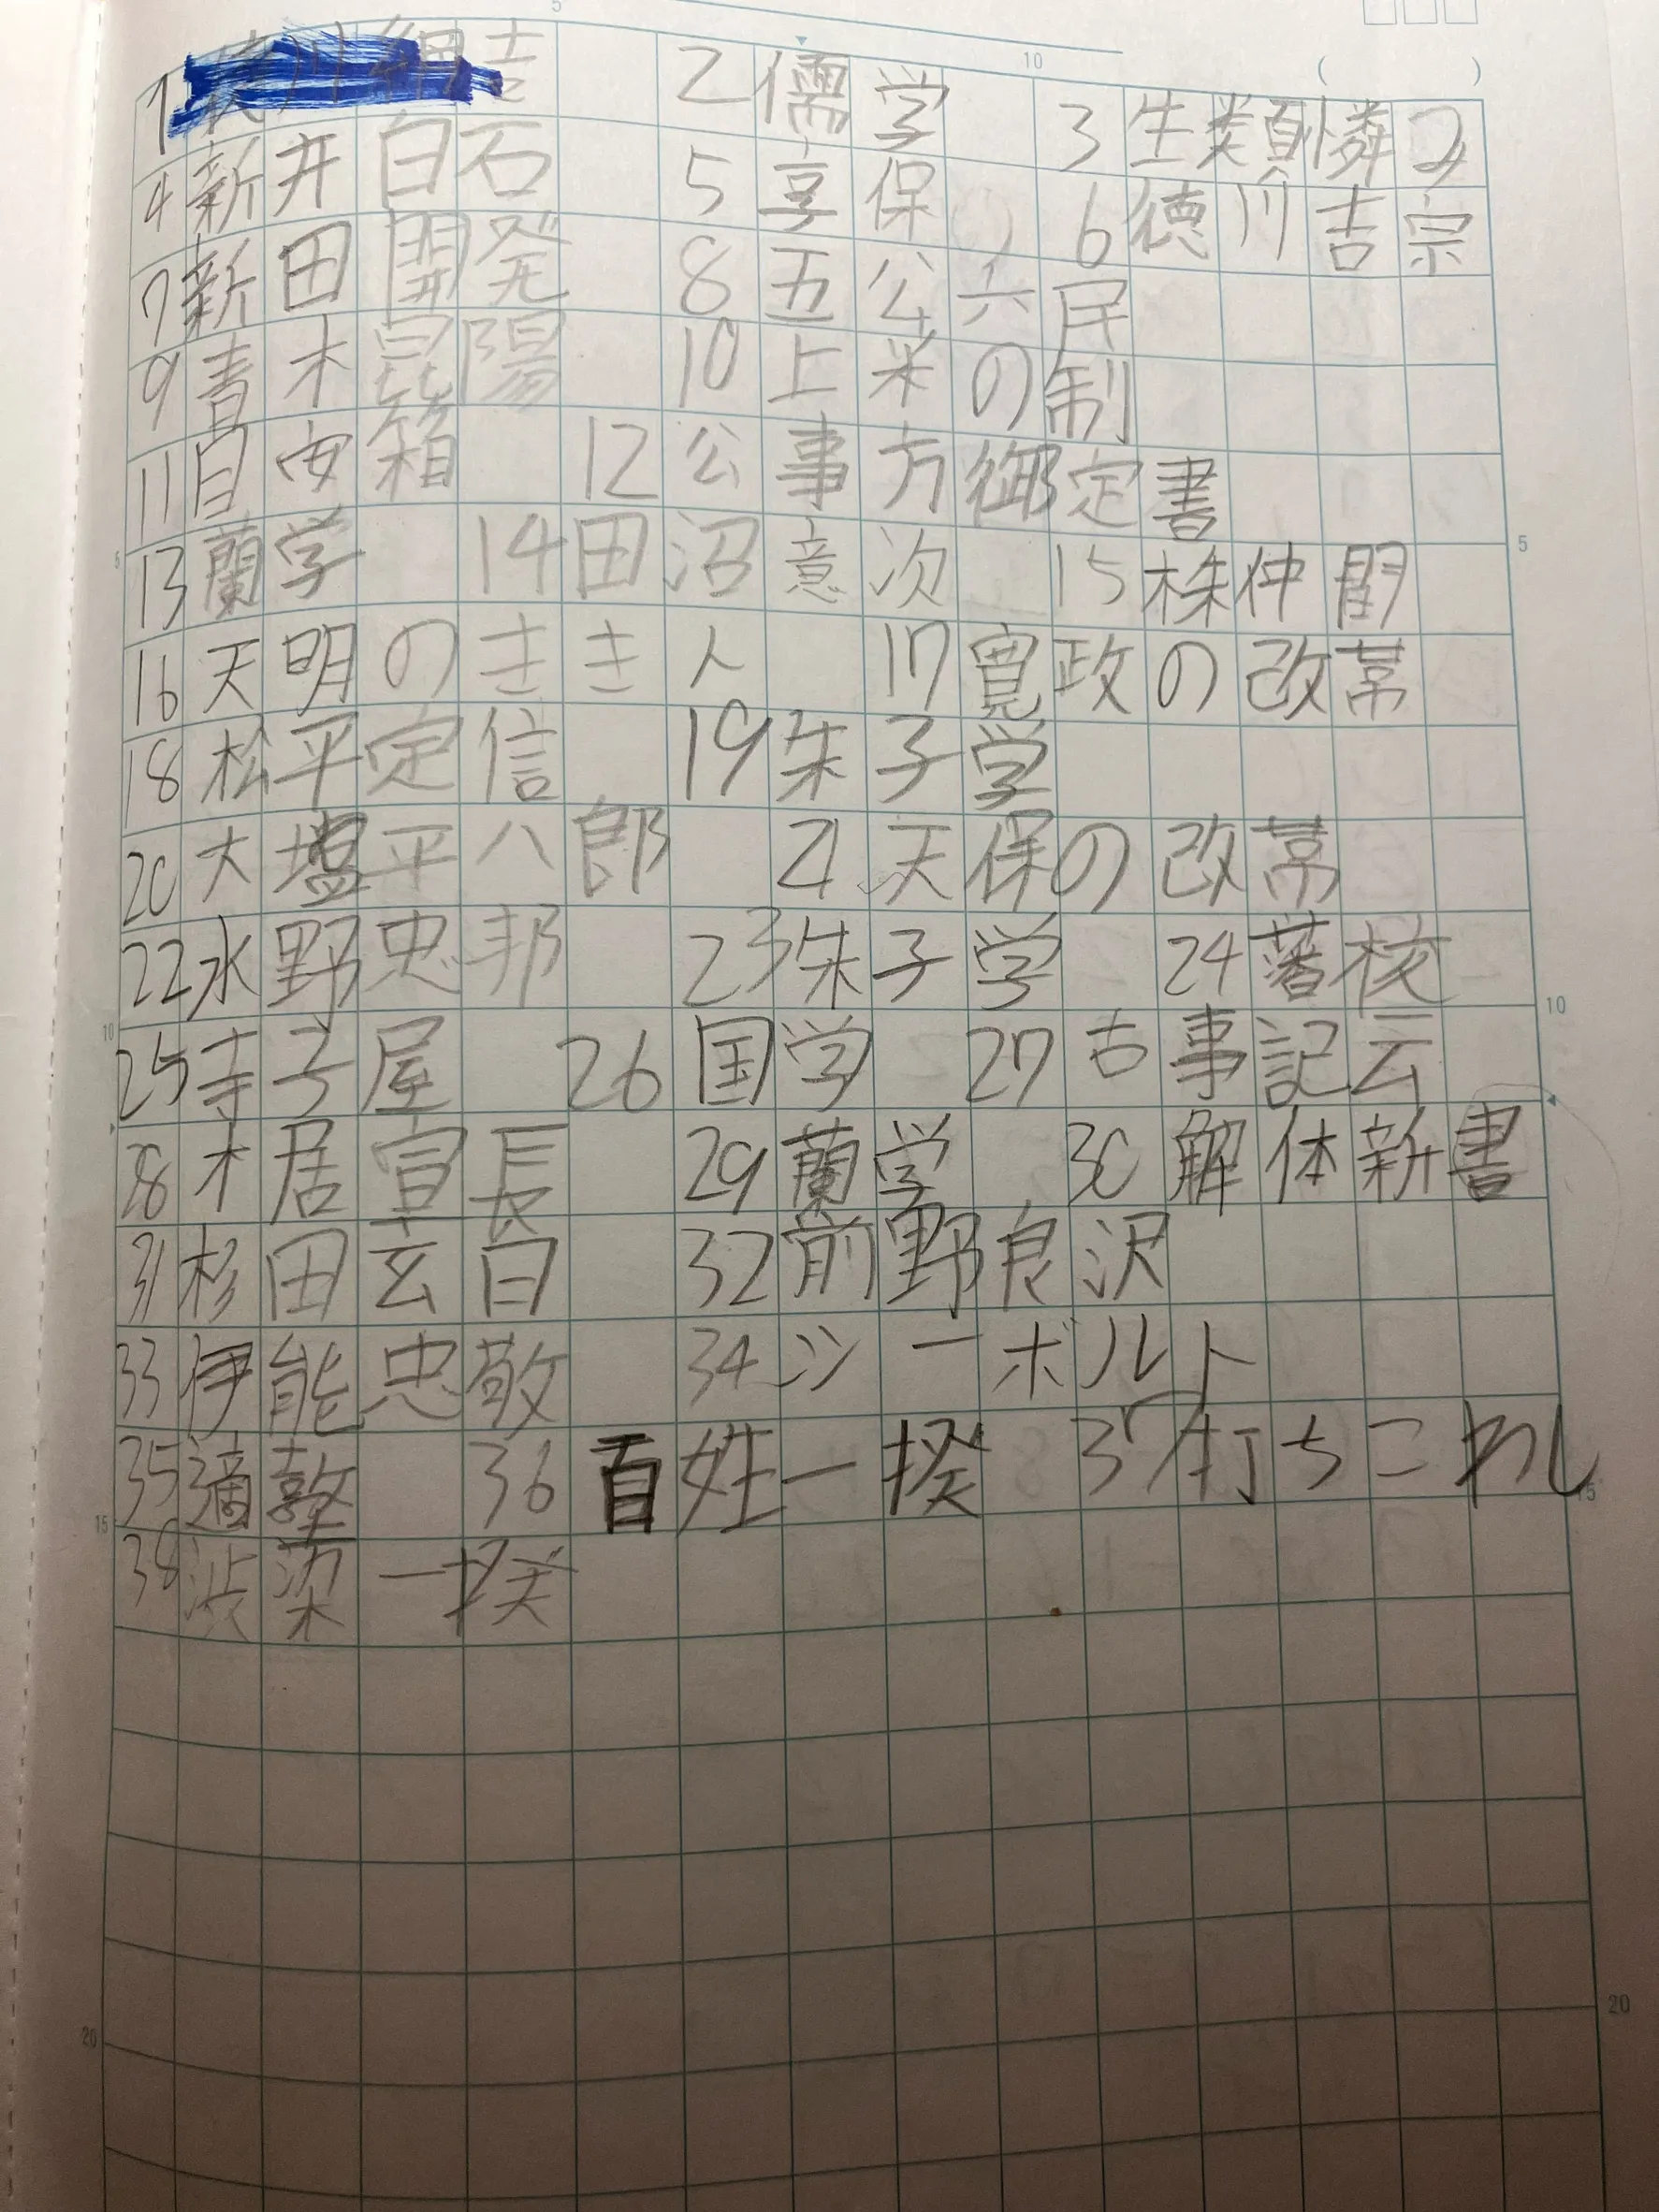 1 川綱吉 2 儒学 3 生類憐み
4 新井白石 5 享保 6 徳川吉宗
7 新田開発 8 五公六民
9 青木昆陽 10 上米の制
11 目安箱 12 公事方御定書
13 蘭学 14 田沼意次 15 株仲間
16 天明のききん 17 寛政の改革
18 松平定信 19 朱子学
20 大塩平八郎 21 天保の改革
22 水野忠邦 23 朱子学 24 藩校
25 寺子屋 26 国学 27 古事記云
28 本居宣長 29 蘭学 30 解体新書
31 杉田玄白 32 前野良沢
33 伊能忠敬 34 シーボルト
35 適塾 36 百姓一揆 37 打ちこわし
38 渋染一揆
5
10
( )
5
10
15
20
5
10
15
20